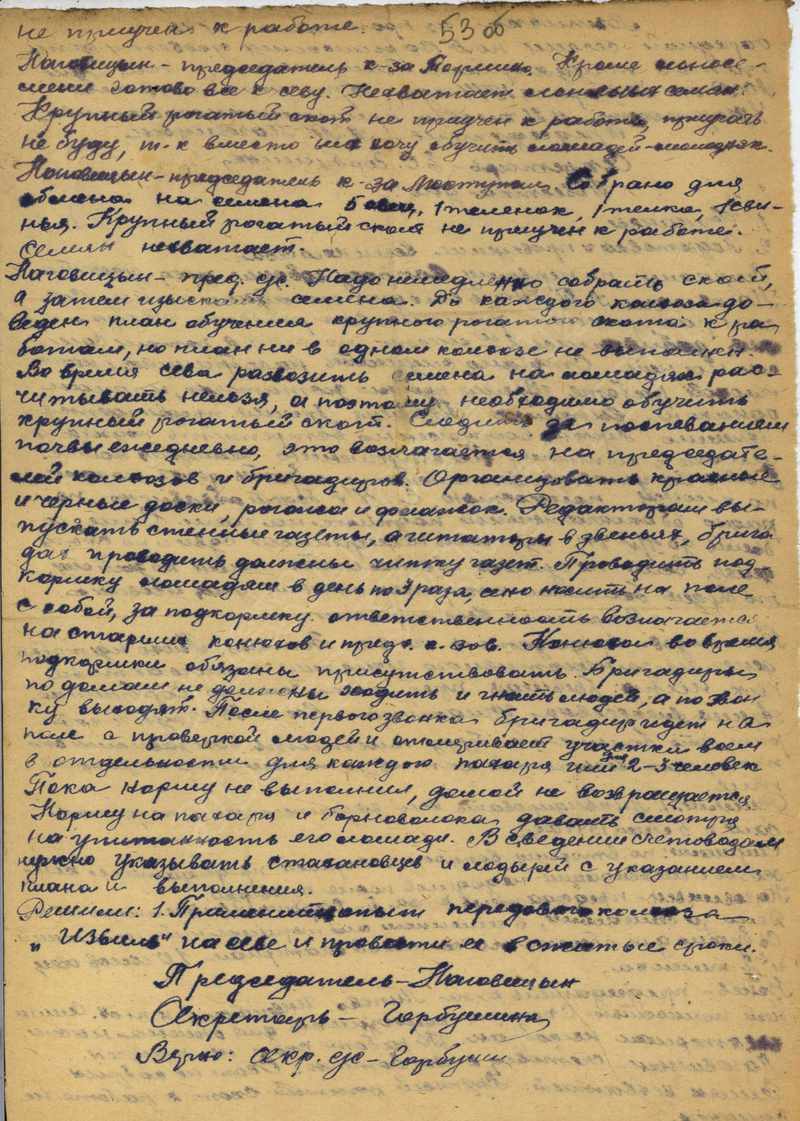 не приучен к работе. 53 об
Наговицын – председатель к-за Кроме
семени готово все к севу. Нехватает семян.
Крупный рогатый скот не приучен к работе, приучать
не буду, т-к вместо хочу обучить лошадей-молодняк.
Наговицын – председатель к-за Собрано для
обмена на семена 5 овец, 1 теленок, 1 телка, 1 сви-
нья. Крупный рогатый скот не приучен к работе.
Семян нехватает.
Наговицын – пред. с/с. Надо немедленно собрать скот,
а затем изыскать семена. До каждого колхоза до-
веден план обучения крупного рогатого скота к ра
ботам, но план ни в одном колхозе не выполнен.
Во время сева развозить семена на лошадях рас-
читывать нельзя, а поэтому необходимо обучить
крупный рогатый скот. Следить за поспеванием
почвы ежедневно, это возлагается на председате-
лей колхозов и бригадиров. Организовать красные
и черные доски, рогожа и флажок. Редакторам вы-
пускать стенные газеты, агитаторы в звеньях, брига
дах проводить должны читку газет. Проводить под-
кормку лошадям в день по 3 раза, сено носить на поле
с собой, за подкормку ответственность возлагается
на старших конюхов и пред. к-зов. Конюхи во время
подкормки обязаны присутствовать. Бригадиры
по домам не должны ходить и гнать людей, а по звон
ку выходят. После первого звонка бригадир идет на
поле с проверкой людей и отмеривает участки всем
в отдельности для каждого пахаря или для 2-3 человек
Пока норму не выполнил, домой не возвращается.
Норму на пахаря и борноволока давать смотря
на упитанность его лошади. В сведении счетоводам
нужно указывать стахановцев и лодырей с указанием
плана и выполнения.
Решили: 1. опыт передового колхоза
на севе и провести его в сжатые сроки.
Председатель – Наговицын
Секретарь – Горбушина
Верно: секр. с/с – Горбуши